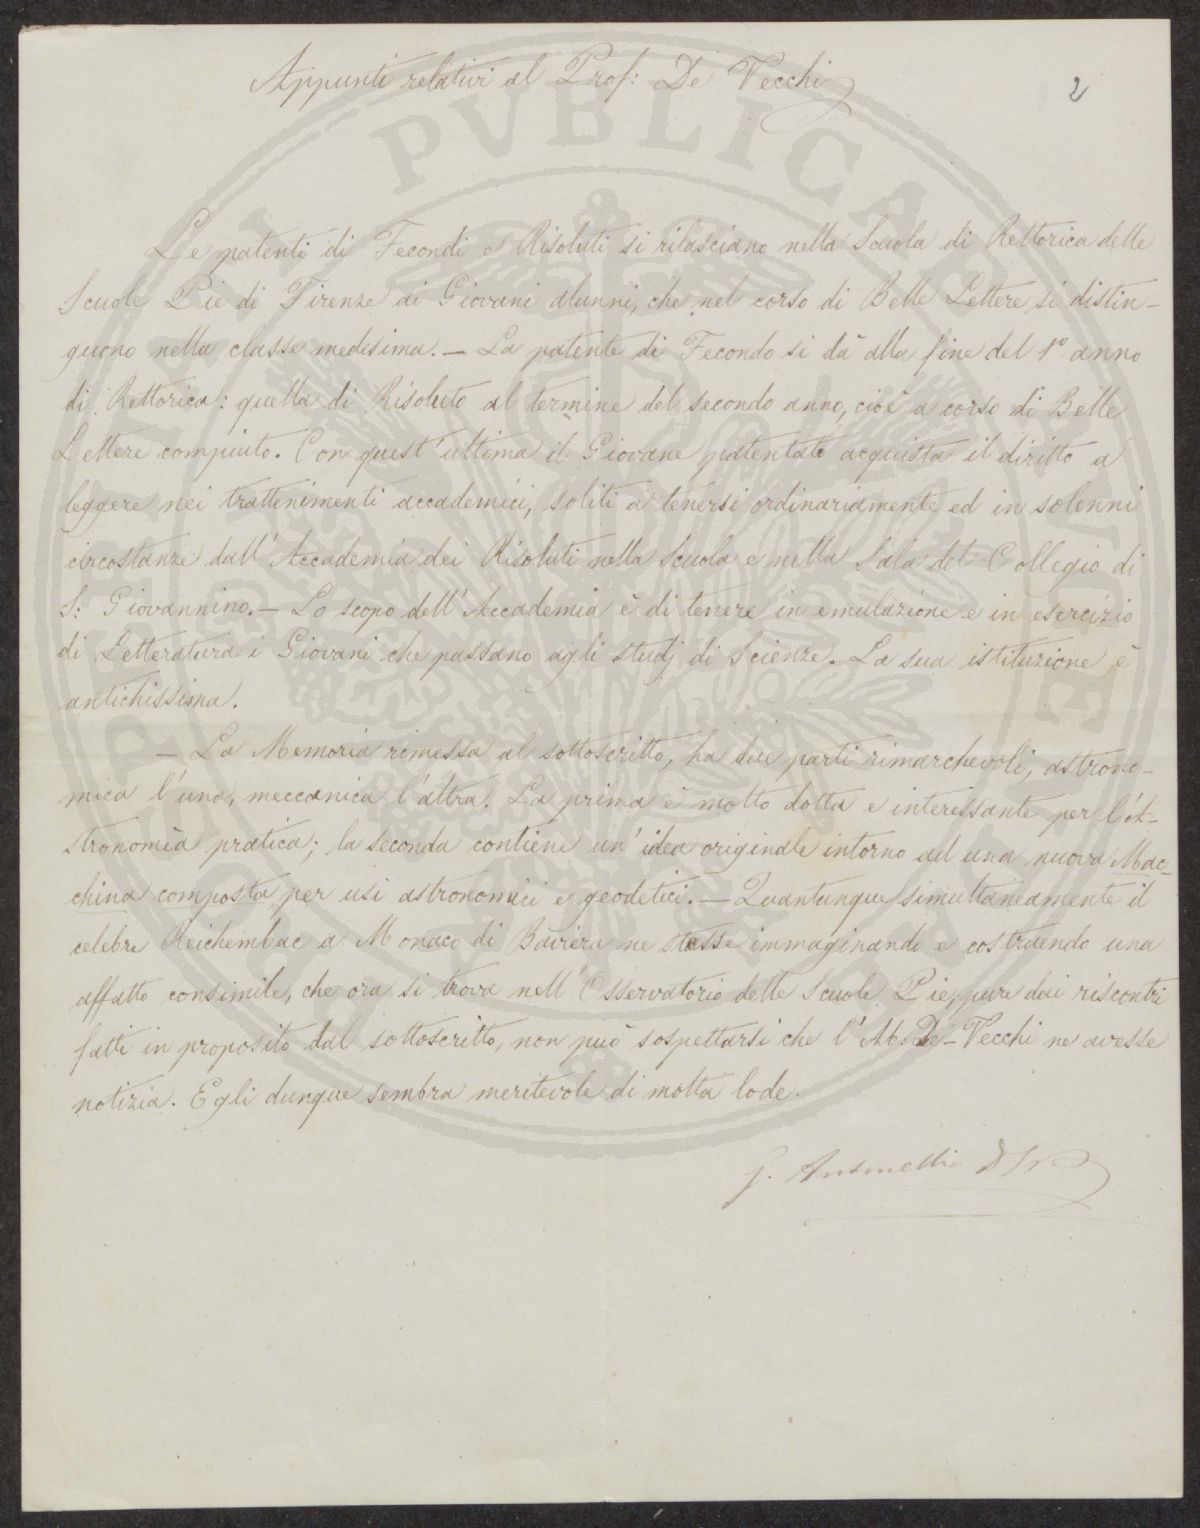 Appunti relativi al Prof: De Vecchi
2
Le patenti di Fecondi e Risoluti si rilasciano nella Scuola di Rettorica delle
Scuole Pie di Firenze ai Giovani alunni, che nel corso di Belle Lettere si distin-
guono nella classe medesima. — La patente di Fecondo si dà alla fine del 1º anno
di Rettorica: quella di Risoluto al termine del secondo anno, cioè a corso di Belle
Lettere compiuto. Con quest'ultima il Giovane patentato acquista il diritto a
leggere nei trattenimenti accademici, soliti a tenersi ordinariamente ed in solenni
circostanze dall'Accademia dei Risoluti nella Scuola e nella Sala del Collegio di
S: Giovannino. — Lo scopo dell'Accademia è di tenere in emulazione e in esercizio
di Letteratura i Giovani che passano agli studj di Scienze. La sua istituzione è
antichissima.
— La Memoria rimessa al sottoscritto, ha due parti rimarchevoli, astrono-
mica l'una, meccanica l'altra. La prima è molto dotta e interessante per l'A-
stronomia pratica; la seconda contiene un'idea originale intorno ad una nuova Mac-
china composta per usi astronomici e geodetici. — Quantunque simultaneamente il
celebre Reichembac a Monaco di Baviera ne stesse immaginando e costruendo una
affatto consimile, che ora si trova nell'Osservatorio delle Scuole Pie, pure dai riscontri
fatti in proposito dal sottoscritto, non può sospettarsi che l'Ab: De-Vecchi ne avesse
notizia. Egli dunque sembra meritevole di molta lode.
G. Antonelli D S P
PUBLICAE